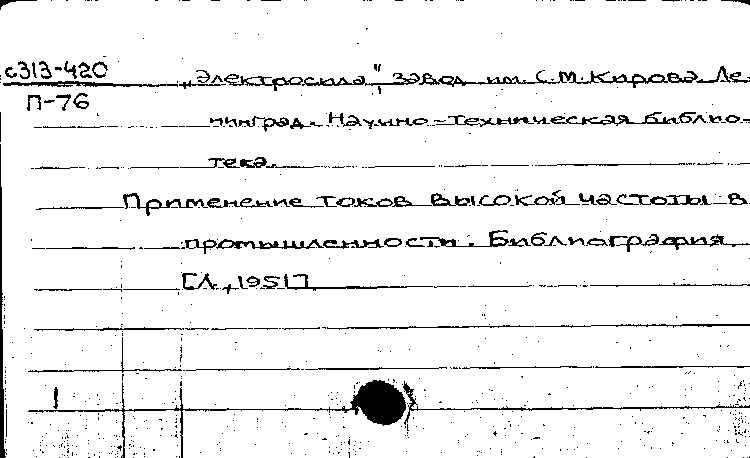 с313-420
П-76
„Электросила", завод им. С.М. Кирова. Ле-
нинград. Научно-техническая библио-
тека.
Применение токов высокой частоты в
промышленности. Библиография.
[Л., 1951]